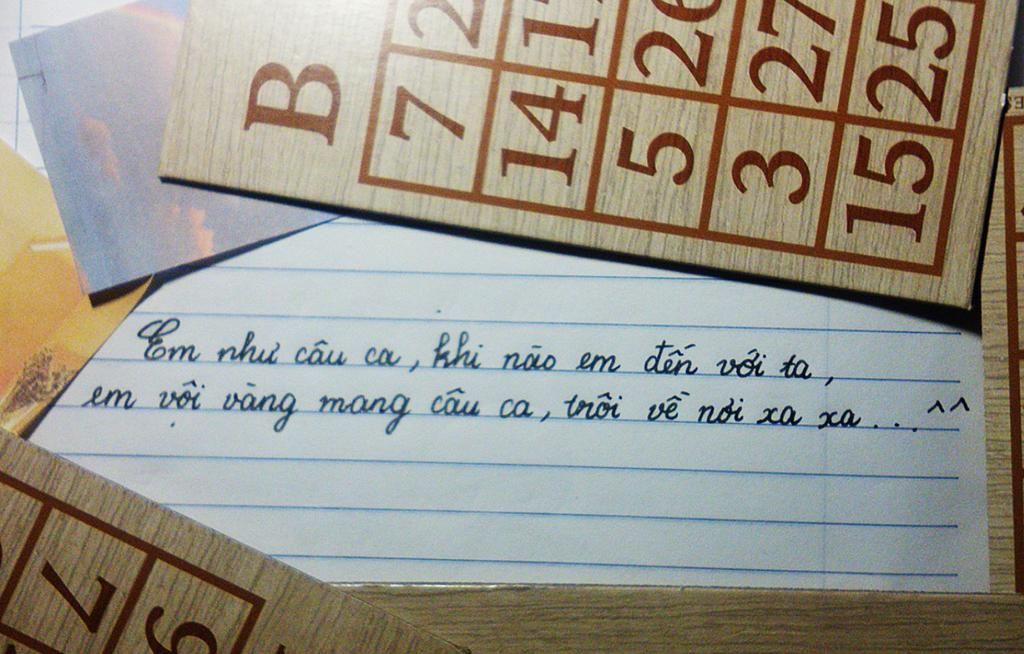 B
7 2
14 1
5 26
3 27
15 25
Em như câu ca, khi nào em đến với ta,
em vội vàng mang câu ca, trôi về nơi xa xa... ^^
7
9